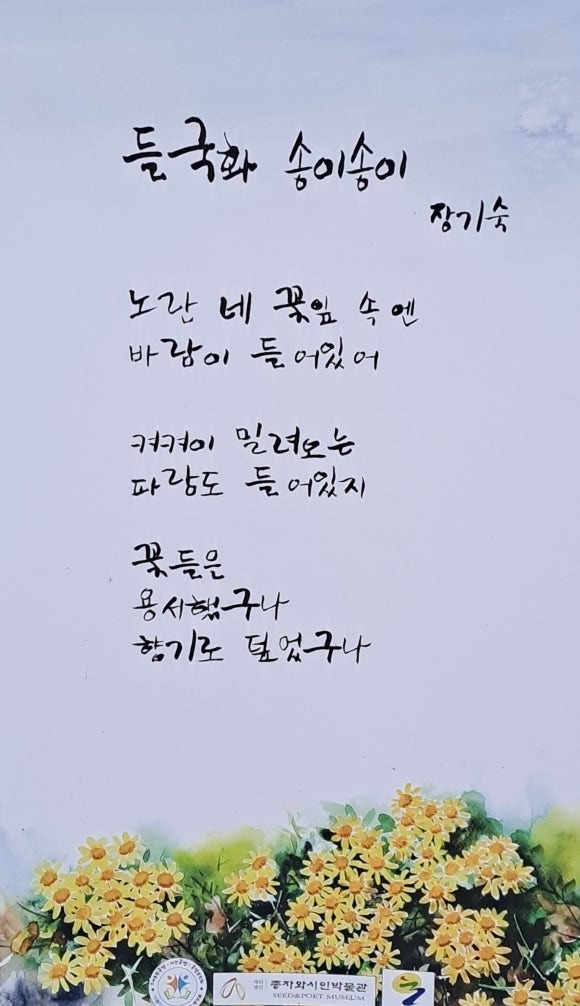 들국화 송이송이
장기숙
노란 네 꽃잎 속엔
바람이 들어있어
켜켜이 밀려오는
파랑도 들어있지
꽃들은
용서했구나
향기로 덮었구나
재단법인 종자와시인박물관
SEED&POET MUSEUM